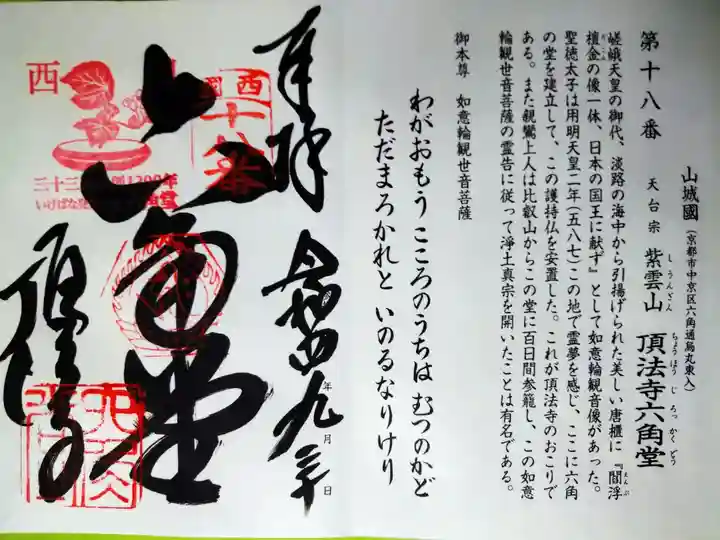 第十八番
山城國(京都市中京区六角通烏丸東入)
天台宗 紫雲山 頂法寺六角堂
しうんざん ちょうほうじろっかくどう
嵯峨天皇の御代、淡路の海中から引揚げられた美しい唐櫃に『閻浮
えんぶ
檀金の像一体、日本の国王に献ず』として如意輪観音像があった。
だごん
聖徳太子は用明天皇二年(五八七)この地で霊夢を感じ、ここに六角
の堂を建立して、この護持仏を安置した。これが頂法寺のおこりで
ある。また親鸞上人は比叡山からこの堂に百日間参籠し、この如意
輪観世音菩薩の霊告に従って浄土真宗を開いたことは有名である。
御本尊 如意輪観世音菩薩
わがおもうこころのうちは むつのかど
ただまろかれと いのるなりけり
奉拝
年 月 日
九 三十
西国
十八番
六角堂
頂法寺
西
三十三
1300年
いけばな発